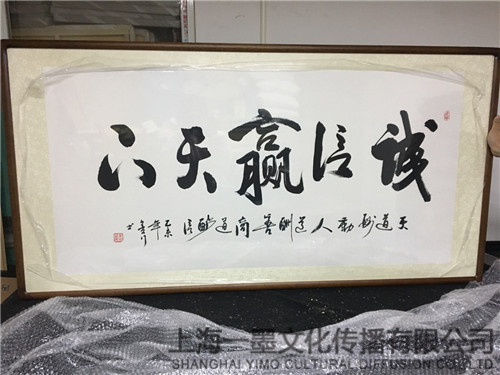 诚信赢天下
天道酬勤人道酬善商道酬信 乙未年
上海一墨文化传播有限公司
SHANGHAI YIMO CULTURAL DIFFUSION CO LTD